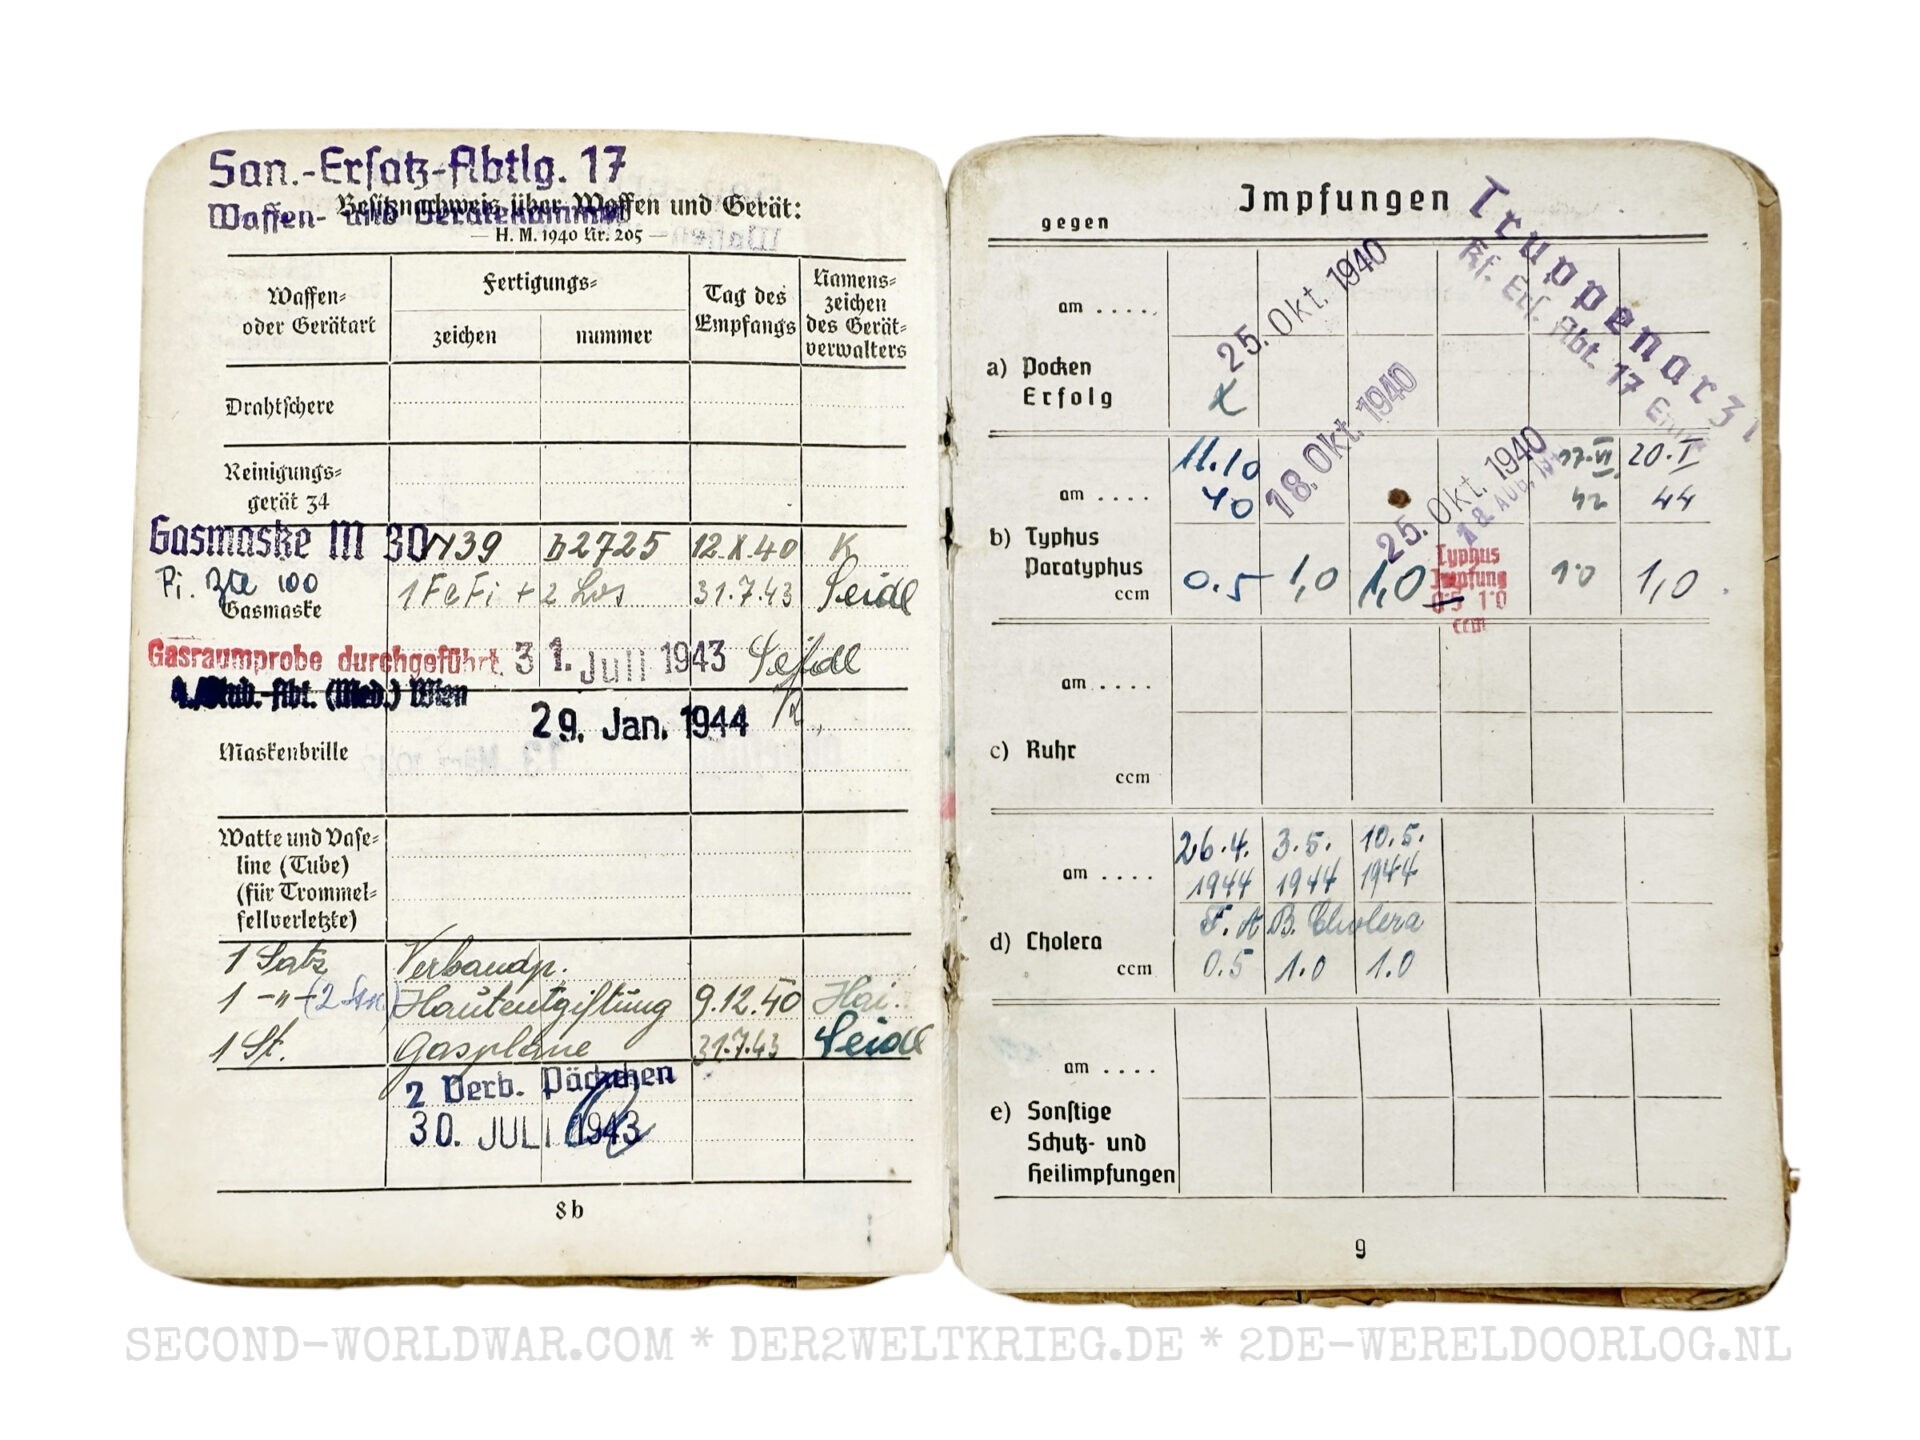 San.-Ersatz-Abtlg. 17
Waffen- und Gerätekammer
Besitznachweis über Waffen und Gerät:
— H. M. 1940 Nr. 205 —
Waffen-
oder Gerätart
Fertigungs-
zeichen
nummer
Tag des
Empfangs
Namens-
zeichen
des Gerät-
verwalters
Drahtschere
Reinigungs-
gerät 34
Gasmaske M 30
39 b2725 12.X.40 K
Gasmaske
1 FeFi + 2 Los 31.7.43 Seidl
Gasraumprobe durchgeführt. 31. Juli 1943 Seidl
Abt. (Med.) Wien
29. Jan. 1944
Maskenbrille
Watte und Vase-
line (Tube)
(für Trommel-
fellverletzte)
1 Satz Verbandp.
1 -"- Hautentgiftung 9.12.40
1 St. Gasplane 31.7.43 Seidl
2 Verb. Päckchen
30. JULI 1943
8b
Impfungen
gegen
Truppenarzt
Kf. Ers. Abt. 17
am . . . .
25. Okt. 1940
a) Pocken
Erfolg
am . . . .
11.10 40
18. Okt. 1940
25. Okt. 1940
17.VI. 42
20.I 44
b) Typhus
Paratyphus
ccm
0.5 1,0 1,0
Typhus
Impfung
0.5 1.0
ccm
1.0 1,0
am . . . .
c) Ruhr
ccm
am . . . .
26.4. 3.5. 10.5.
1944 1944 1944
Cholera
d) Cholera
ccm
0.5 1.0 1.0
am . . . .
e) Sonstige
Schutz- und
Heilimpfungen
9
SECOND-WORLDWAR.COM * DER2WELTKRIEG.DE * 2DE-WERELDOORLOG.NL